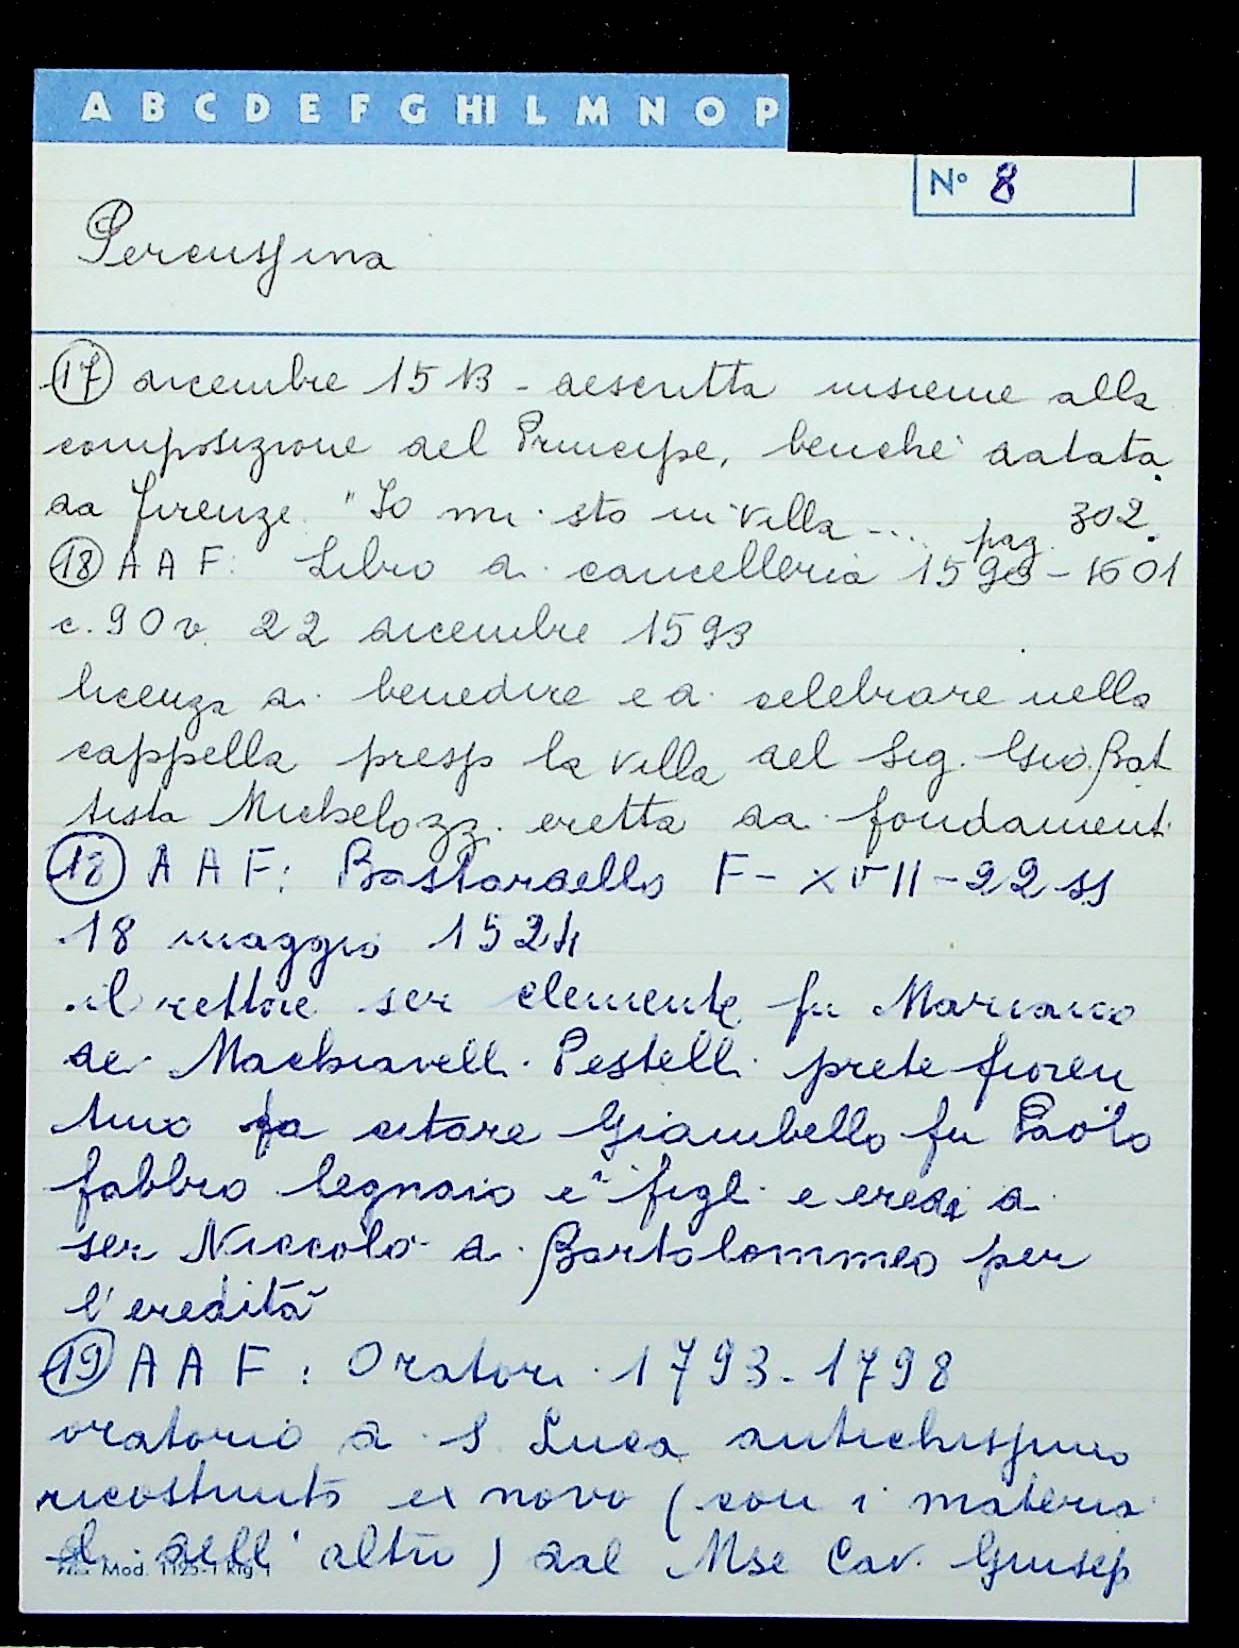 A B C D E F G HI L M N O P
N° 8
Percussina
17 dicembre 1513 - descritta insieme alla
composizione del Principe, benché datata
da Firenze. "Io mi sto in villa ... pag. 302.
18 AAF: Libro di cancelleria 1593-1601
c. 90v. 22 dicembre 1593
licenza di benedire e di celebrare nella
cappella presso la villa del Sig. Gio. Bat
tista Michelozzi eretta da fondamenti
18 AAF: Bastardello F-XVII-22 ss
18 maggio 1524
il rettore ser Clemente fu Mariano
dei Machiavelli Pestelli prete fioren
tino fa citare Giambello fu Paolo
fabbro legnaio e i figli e eredi di
ser Niccolò di Bartolommeo per
l'eredità
19 AAF: Oratori 1793-1798
oratorio di S. Luca antichissimo
ricostruito ex novo (con i materia
li dell'altro) dal Mse Cav. Giusep
Mod. 1125-1 Rig. 1